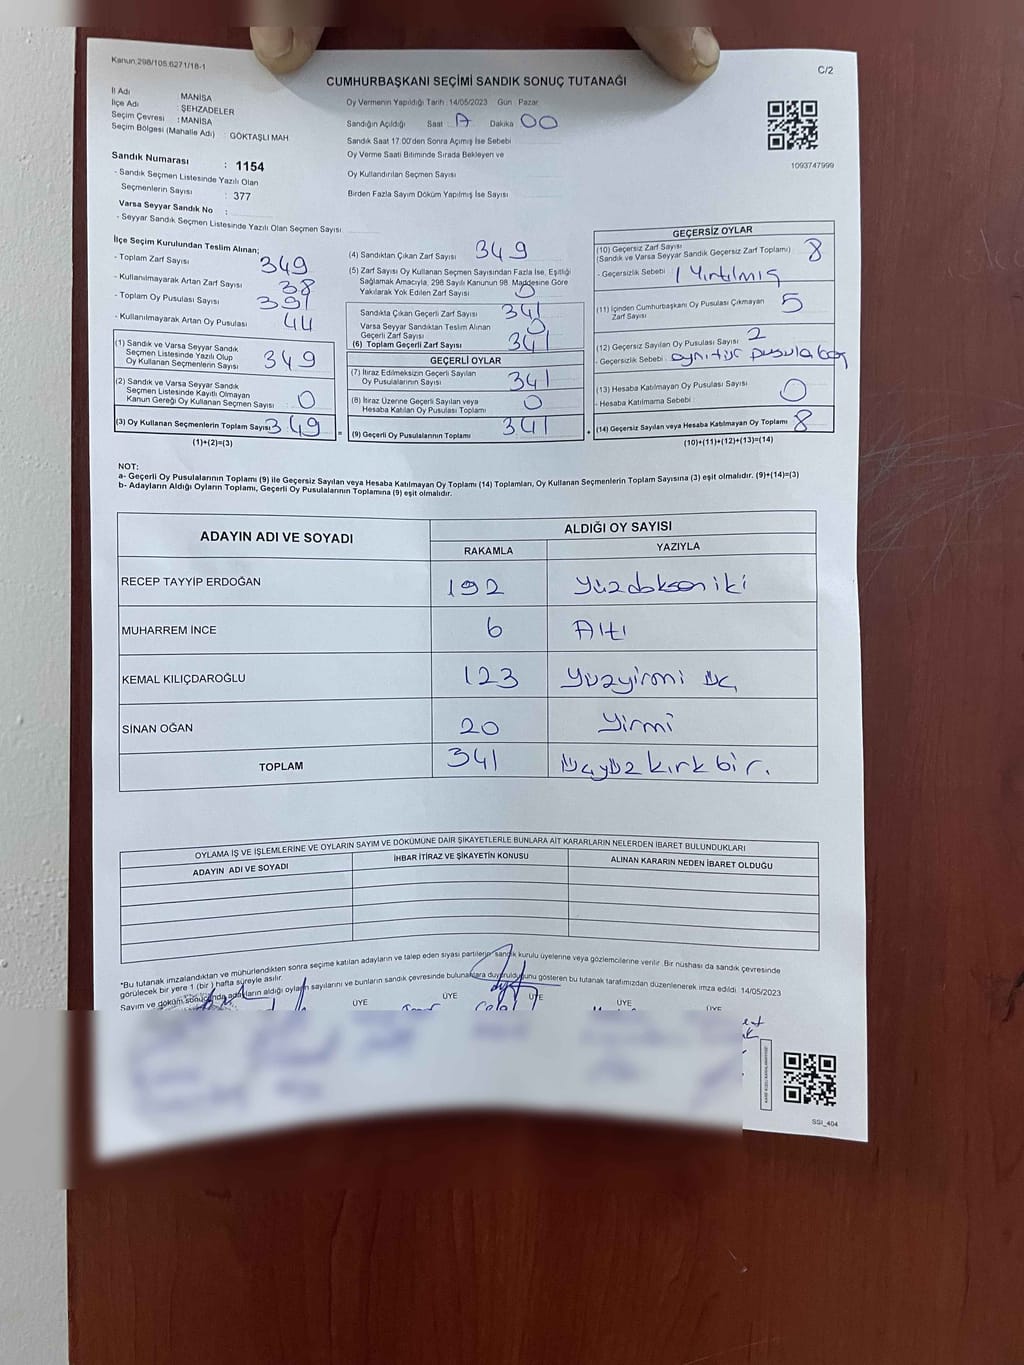 Kanun.298/105.6271/18-1
C/2
CUMHURBAŞKANI SEÇİMİ SANDIK SONUÇ TUTANAĞI
İl Adı : MANİSA
İlçe Adı : ŞEHZADELER
Seçim Çevresi : MANİSA
Seçim Bölgesi (Mahalle Adı) : GÖKTAŞLI MAH
Oy Vermenin Yapıldığı Tarih : 14/05/2023 Gün : Pazar
Sandığın Açıldığı Saat : Dakika 00
Sandık Saat 17:00'den Sonra Açımış İse Sebebi
Oy Verme Saati Bitiminde Sırada Bekleyen ve
Oy Kullandırılan Seçmen Sayısı
Birden Fazla Sayım Döküm Yapılmış İse Sayısı
1093747999
Sandık Numarası : 1154
- Sandık Seçmen Listesinde Yazılı Olan
Seçmenlerin Sayısı : 377
Varsa Seyyar Sandık No :
- Seyyar Sandık Seçmen Listesinde Yazılı Olan Seçmen Sayısı
İlçe Seçim Kurulundan Teslim Alınan;
- Toplam Zarf Sayısı 349
- Kullanılmayarak Artan Zarf Sayısı 38
- Toplam Oy Pusulası Sayısı 391
- Kullanılmayarak Artan Oy Pusulası 44
(1) Sandık ve Varsa Seyyar Sandık
Seçmen Listesinde Yazılı Olup
Oy Kullanan Seçmenlerin Sayısı 349
(2) Sandık ve Varsa Seyyar Sandık
Seçmen Listesinde Kayıtlı Olmayan
Kanun Gereği Oy Kullanan Seçmen Sayısı 0
(3) Oy Kullanan Seçmenlerin Toplam Sayısı 349
(1)+(2)=(3)
(4) Sandıktan Çıkan Zarf Sayısı 349
(5) Zarf Sayısı Oy Kullanan Seçmen Sayısından Fazla İse, Eşitliği
Sağlamak Amacıyla, 298 Sayılı Kanunun 98. Maddesine Göre
Yakılarak Yok Edilen Zarf Sayısı 0
Sandıkta Çıkan Geçerli Zarf Sayısı 341
Varsa Seyyar Sandıktan Teslim Alınan
Geçerli Zarf Sayısı 0
(6) Toplam Geçerli Zarf Sayısı 341
GEÇERLİ OYLAR
(7) İtiraz Edilmeksizin Geçerli Sayılan
Oy Pusulalarının Sayısı 341
(8) İtiraz Üzerine Geçerli Sayılan veya
Hesaba Katılan Oy Pusulası Toplamı 0
= (9) Geçerli Oy Pusulalarının Toplamı 341
GEÇERSİZ OYLAR
(10) Geçersiz Zarf Sayısı
(Sandık ve Varsa Seyyar Sandık Geçersiz Zarf Toplamı) 8
- Geçersizlik Sebebi : 1 Yırtılmış
(11) İçinden Cumhurbaşkanı Oy Pusulası Çıkmayan
Zarf Sayısı 5
(12) Geçersiz Sayılan Oy Pusulası Sayısı 2
- Geçersizlik Sebebi : aynı tür pusula
(13) Hesaba Katılmayan Oy Pusulası Sayısı 0
- Hesaba Katılmama Sebebi
+ (14) Geçersiz Sayılan veya Hesaba Katılmayan Oy Toplamı 8
(10)+(11)+(12)+(13)=(14)
NOT:
a- Geçerli Oy Pusulalarının Toplamı (9) ile Geçersiz Sayılan veya Hesaba Katılmayan Oy Toplamı (14) Toplamları, Oy Kullanan Seçmenlerin Toplam Sayısına (3) eşit olmalıdır. (9)+(14)=(3)
b- Adayların Aldığı Oyların Toplamı, Geçerli Oy Pusulalarının Toplamına (9) eşit olmalıdır.
ADAYIN ADI VE SOYADI
ALDIĞI OY SAYISI
RAKAMLA YAZIYLA
RECEP TAYYİP ERDOĞAN 192 Yüzdokseniki
MUHARREM İNCE 6 Altı
KEMAL KILIÇDAROĞLU 123 Yüzyirmi üç
SİNAN OĞAN 20 Yirmi
TOPLAM 341 Üçyüz kırk bir.
OYLAMA İŞ VE İŞLEMLERİNE VE OYLARIN SAYIM VE DÖKÜMÜNE DAİR ŞİKAYETLERLE BUNLARA AİT KARARLARIN NELERDEN İBARET BULUNDUKLARI
ADAYIN ADI VE SOYADI
İHBAR İTİRAZ VE ŞİKAYETİN KONUSU
ALINAN KARARIN NEDEN İBARET OLDUĞU
*Bu tutanak imzalandıktan ve mühürlendikten sonra seçime katılan adayların ve talep eden siyasi partilerin sandık kurulu üyelerine veya gözlemcilerine verilir. Bir nüshası da sandık çevresinde
görülecek bir yere 1 (bir) hafta süreyle asılır.
Sayım ve döküm sonucunda adayların aldığı oyların sayılarını ve bunların sandık çevresinde bulunanlara duyurulduğunu gösteren bu tutanak tarafımızdan düzenlenerek imza edildi. 14/05/2023
ÜYE ÜYE ÜYE ÜYE ÜYE
SSI_404